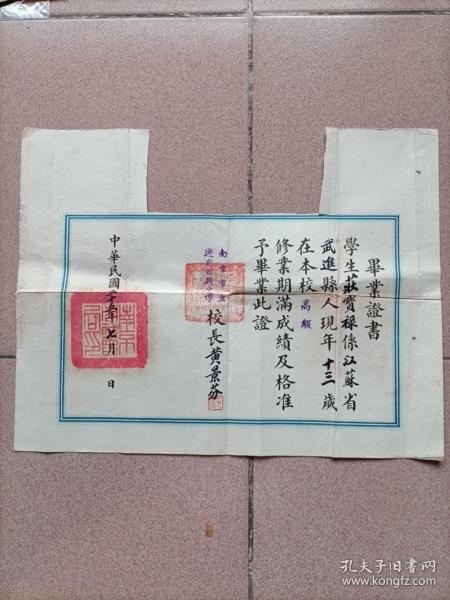 畢業證書
學生莊寶祿係江蘇省
武進縣人現年十三歲
在本校高級
修業期滿成績及格准
予畢業此證
南京市立
校長黃景芬
中華民國二十五年七月 日
孔夫子旧书网
www.kongfz.com